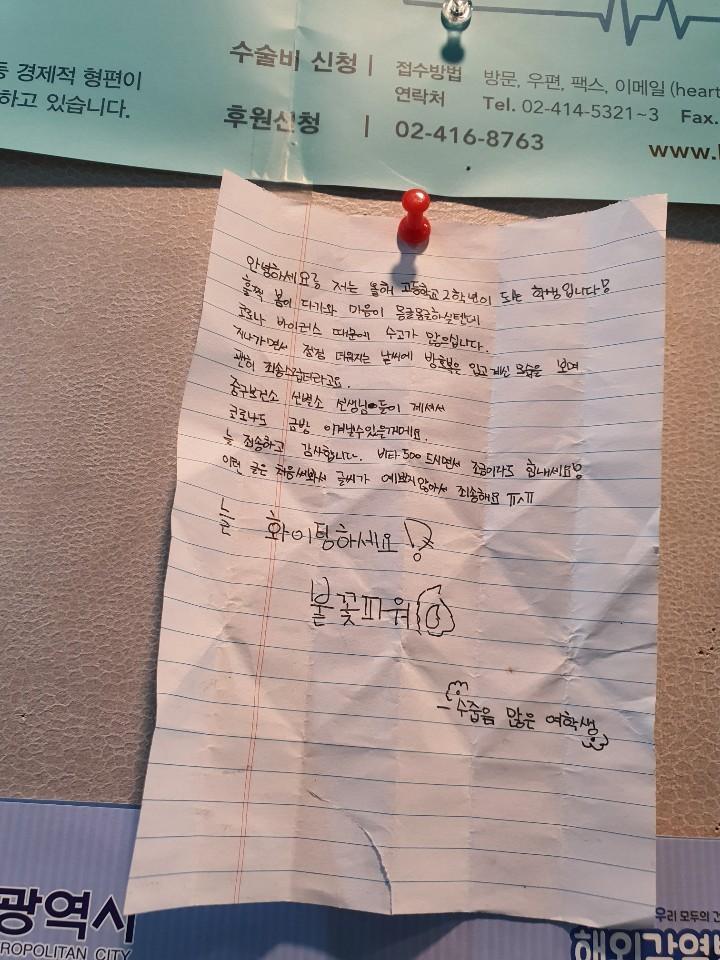 등 경제적 형편이
하고 있습니다.
수술비 신청 | 접수방법 방문, 우편, 팩스, 이메일 (heart
연락처 Tel. 02-414-5321~3 Fax.
후원신청 | 02-416-8763
www.
안녕하세요? 저는 올해 고등학교 2학년이 되는 학생입니다!
훌쩍 봄이 다가와 마음이 뭉클뭉클하실텐데
코로나 바이러스 때문에 수고가 많으십니다.
지나가면서 점점 더워지는 날씨에 방호복을 입고 계신 모습을 보며
괜히 죄송스럽더라고요.
중구보건소 선별소 선생님들이 계셔서
코로나도 금방 이겨낼수있을거예요.
늘 죄송하고 감사합니다. 비타500 드시면서 조금이라도 힘내세요!
이런 글은 처음써봐서 글씨가 예쁘지않아서 죄송해요 ㅠㅅㅠ
늘 화이팅하세요!
불꽃파워
- 수줍음 많은 여학생
광역시
ROPOLITAN CITY
우리 모두의 건
해외감염병